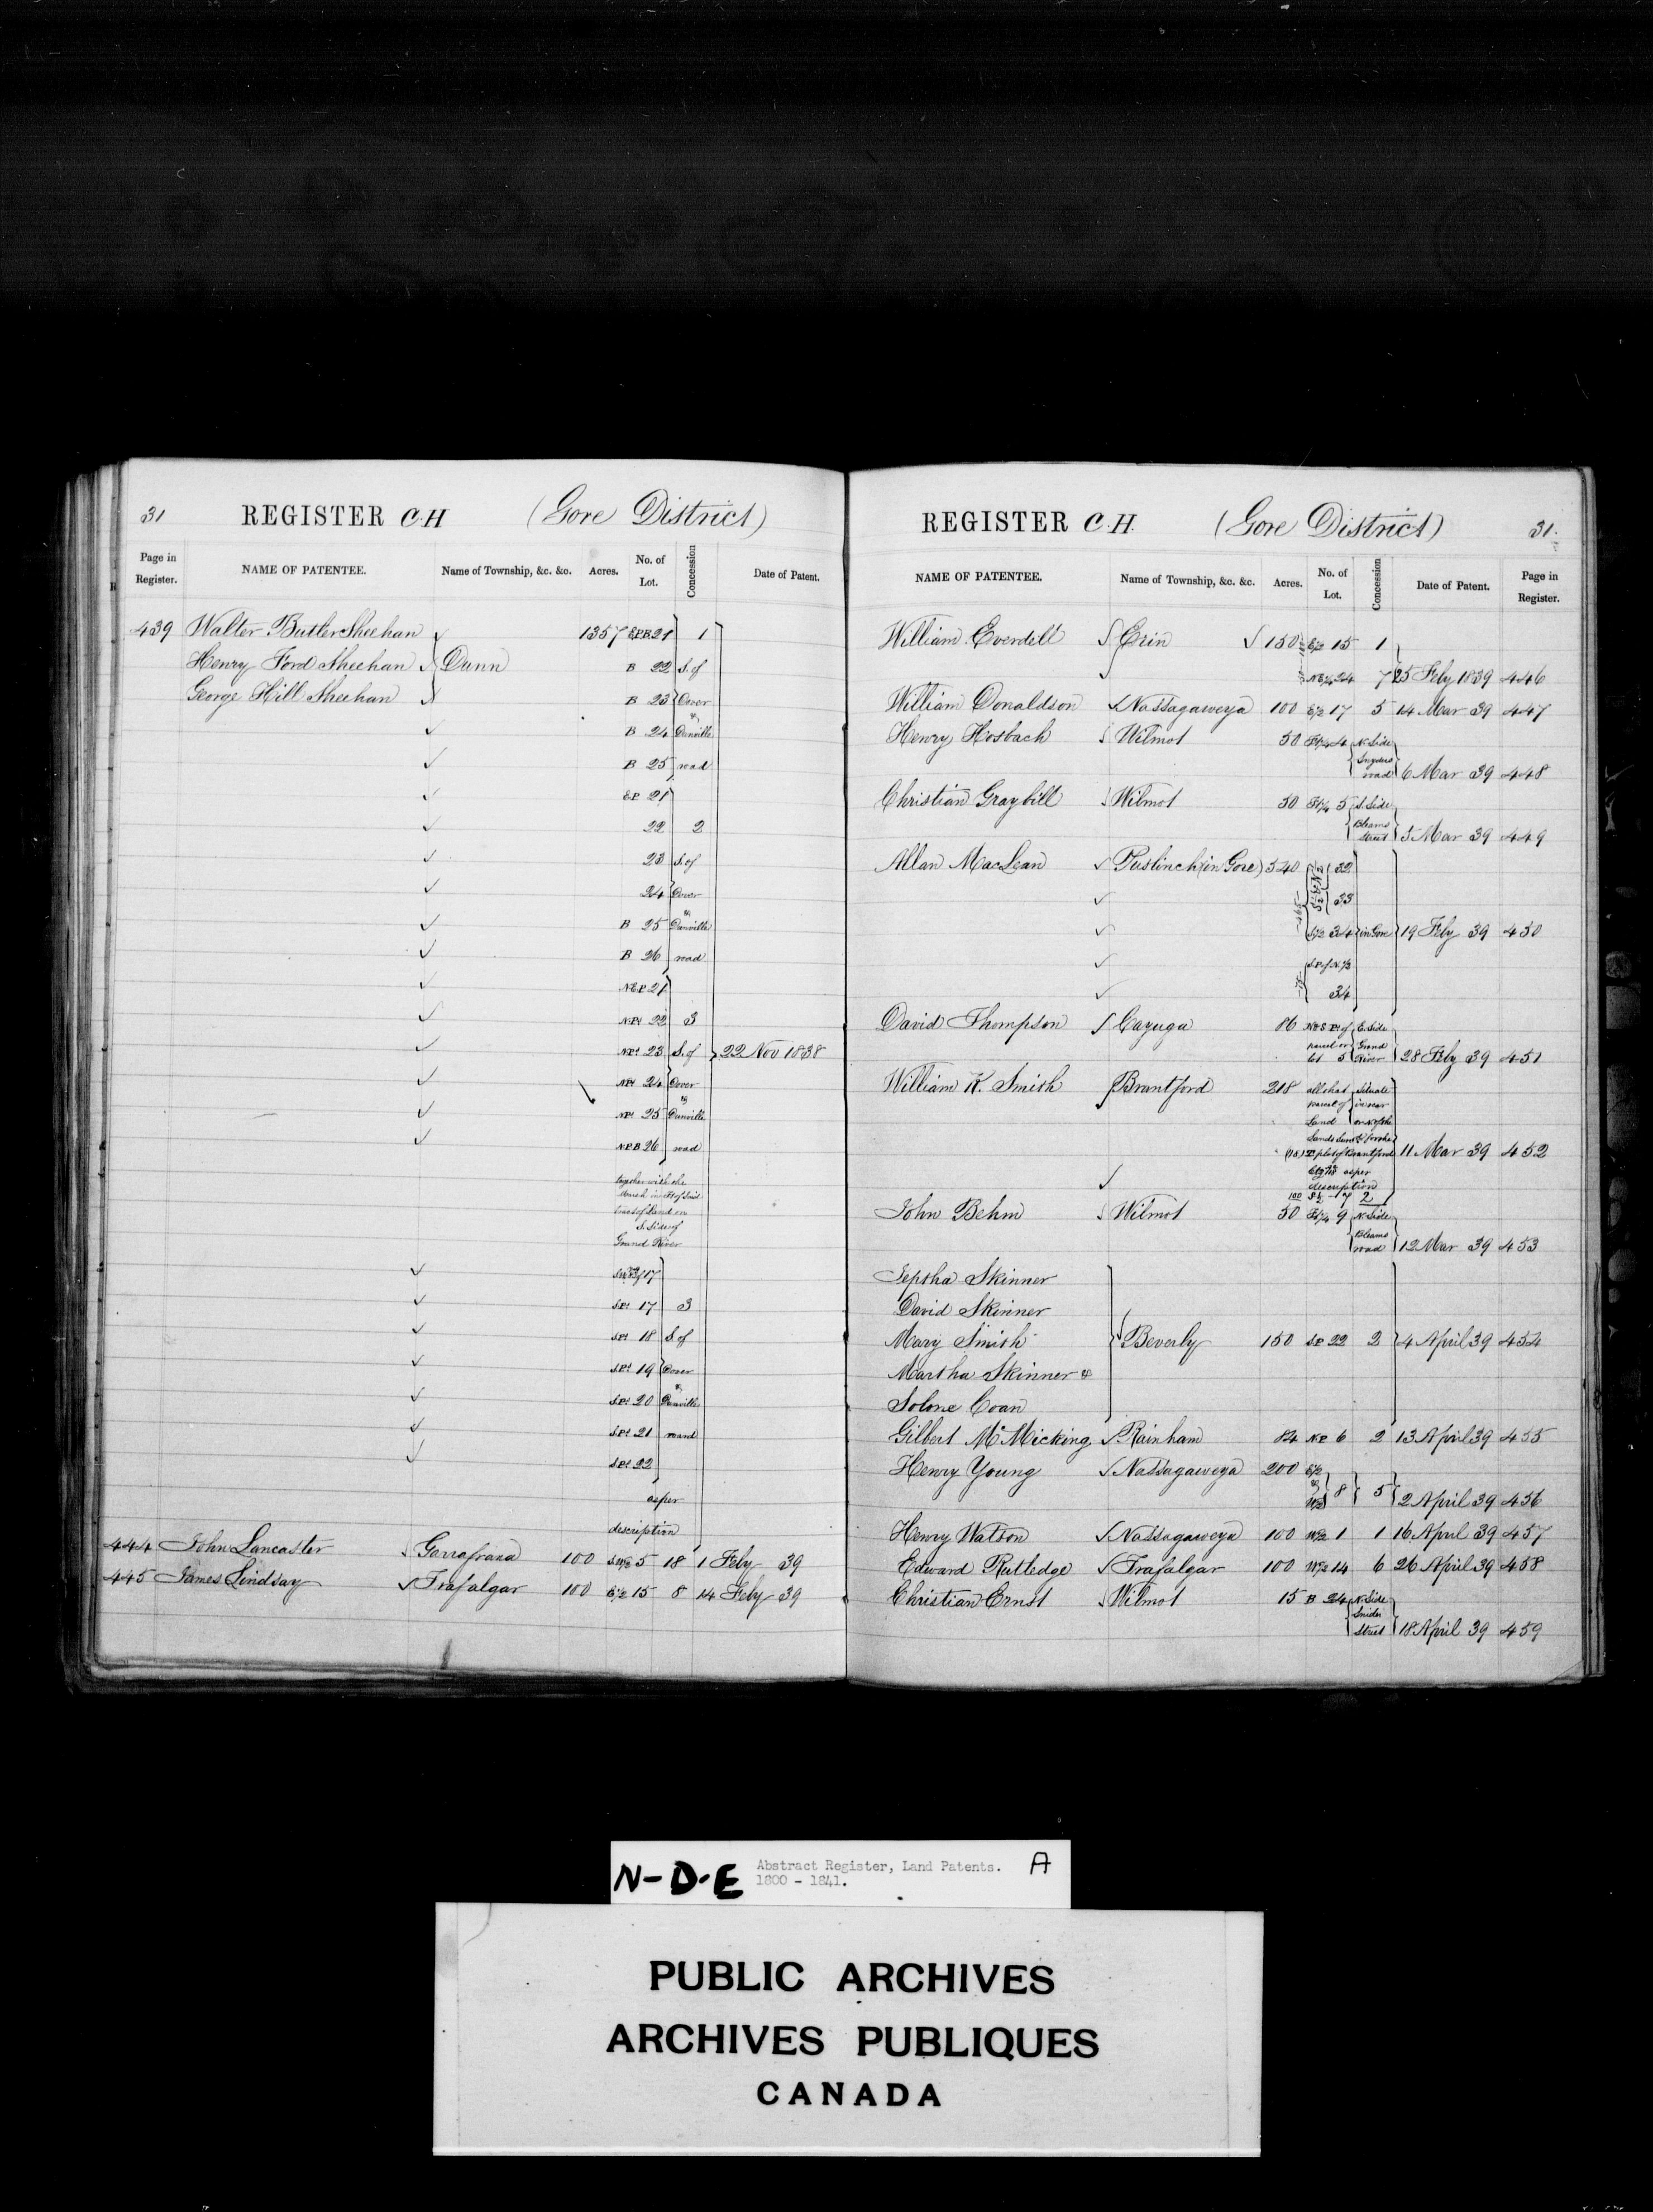 31 REGISTER C.H (Gore District)
Page in Register. NAME OF PATENTEE. Name of Township, &c. &c. Acres. No. of Lot. Concession Date of Patent.
439 Walter Butler Sheehan 1357 E.P.B 21 1
Henry Ford Sheehan Dunn B 22 S. of
George Hill Sheehan B 23 Dover
&
B 24 Dunville
B 25 road
E.P. 21
22 2
23 S. of
24 Dover
&
B 25 Dunville
B 26 road
N.E.P. 21
N.Pt 22 3
N.Pt 23 S. of 22 Nov 1838
N.Pt 24 Dover
&
N.Pt 25 Dunville
N.P.B 26 road
together with the
Marsh in Ft of said
tract of Land on
S. Side of
Grand River
17
S.Pt 17 3
S.Pt 18 S. of
S.Pt 19 Dover
&
S.Pt 20 Dunville
S.Pt 21 road
S.Pt 22
as per
description
444 John Lancaster Garrafraxa 100 S.W½ 5 18 1 Feby 39
445 James Lindsay Trafalgar 100 E½ 15 8 14 Feby 39
REGISTER C.H. (Gore District) 31.
NAME OF PATENTEE. Name of Township, &c. &c. Acres. No. of Lot. Concession Date of Patent. Page in Register.
William Everdell Erin 150 E½ 15 1
NE¼ 24 7 25 Feby 1839 446
William Donaldson Nassagaweya 100 E½ 17 5 14 Mar 39 447
Henry Hosbach Wilmot 50 Ft¼ 4 N. Side
Snyders
road 6 Mar 39 448
Christian Graybill Wilmot 50 Ft¼ 5 S. Side
Bleams
Street 5 Mar 39 449
Allan MacLean Puslinch (in Gore) 540 32
33
S½ 34 in Gore 19 Feby 39 450
S.P. of N.½
34
David Thompson Cayuga 86 N & S Pt of E. Side
parcel or Grand
lot 5 River 28 Feby 39 451
William K. Smith Brantford 218 all that Situate
parcel of in rear
Land or N. of the
Lands for the
plot of Brantford 11 Mar 39 452
as per
description
100 S½ 7 2
John Behm Wilmot 50 Ft¼ 9 N. Side
Bleams
road 12 Mar 39 453
Jeptha Skinner
David Skinner
Mary Smith Beverly 150 S.P. 22 2 4 April 39 454
Martha Skinner &
Solone Coan
Gilbert McMicking Rainham 84 N.P. 6 2 13 April 39 455
Henry Young Nassagaweya 200 E½
& 8 5
W½ 2 April 39 456
Henry Watson Nassagaweya 100 W½ 1 1 16 April 39 457
Edward Rutledge Trafalgar 100 W½ 14 6 26 April 39 458
Christian Ernst Wilmot 15 B 24 N. Side
Snider
Street 18 April 39 459
N-D-E Abstract Register, Land Patents. A
1800 - 1841.
PUBLIC ARCHIVES
ARCHIVES PUBLIQUES
CANADA